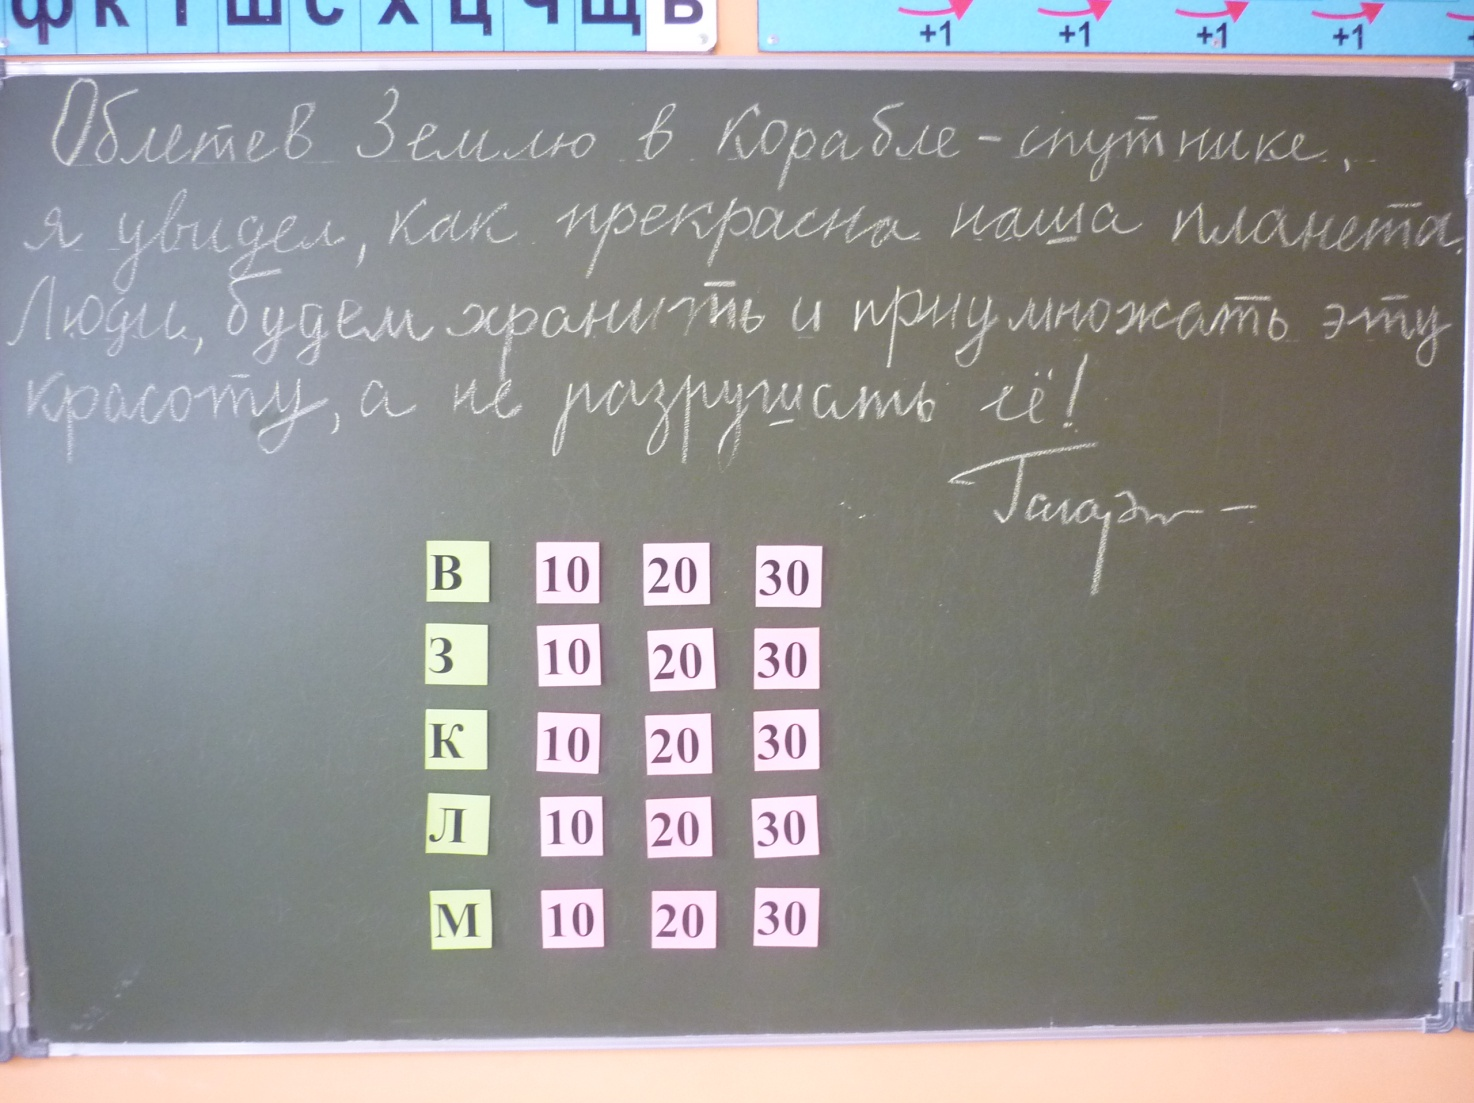 ф к т ш с х ц ч щ
+1 +1 +1 +1
Облетев Землю в корабле-спутнике,
я увидел, как прекрасна наша планета.
Люди, будем хранить и приумножать эту
красоту, а не разрушать её!
Гагарин
В 10 20 30
З 10 20 30
К 10 20 30
Л 10 20 30
М 10 20 30